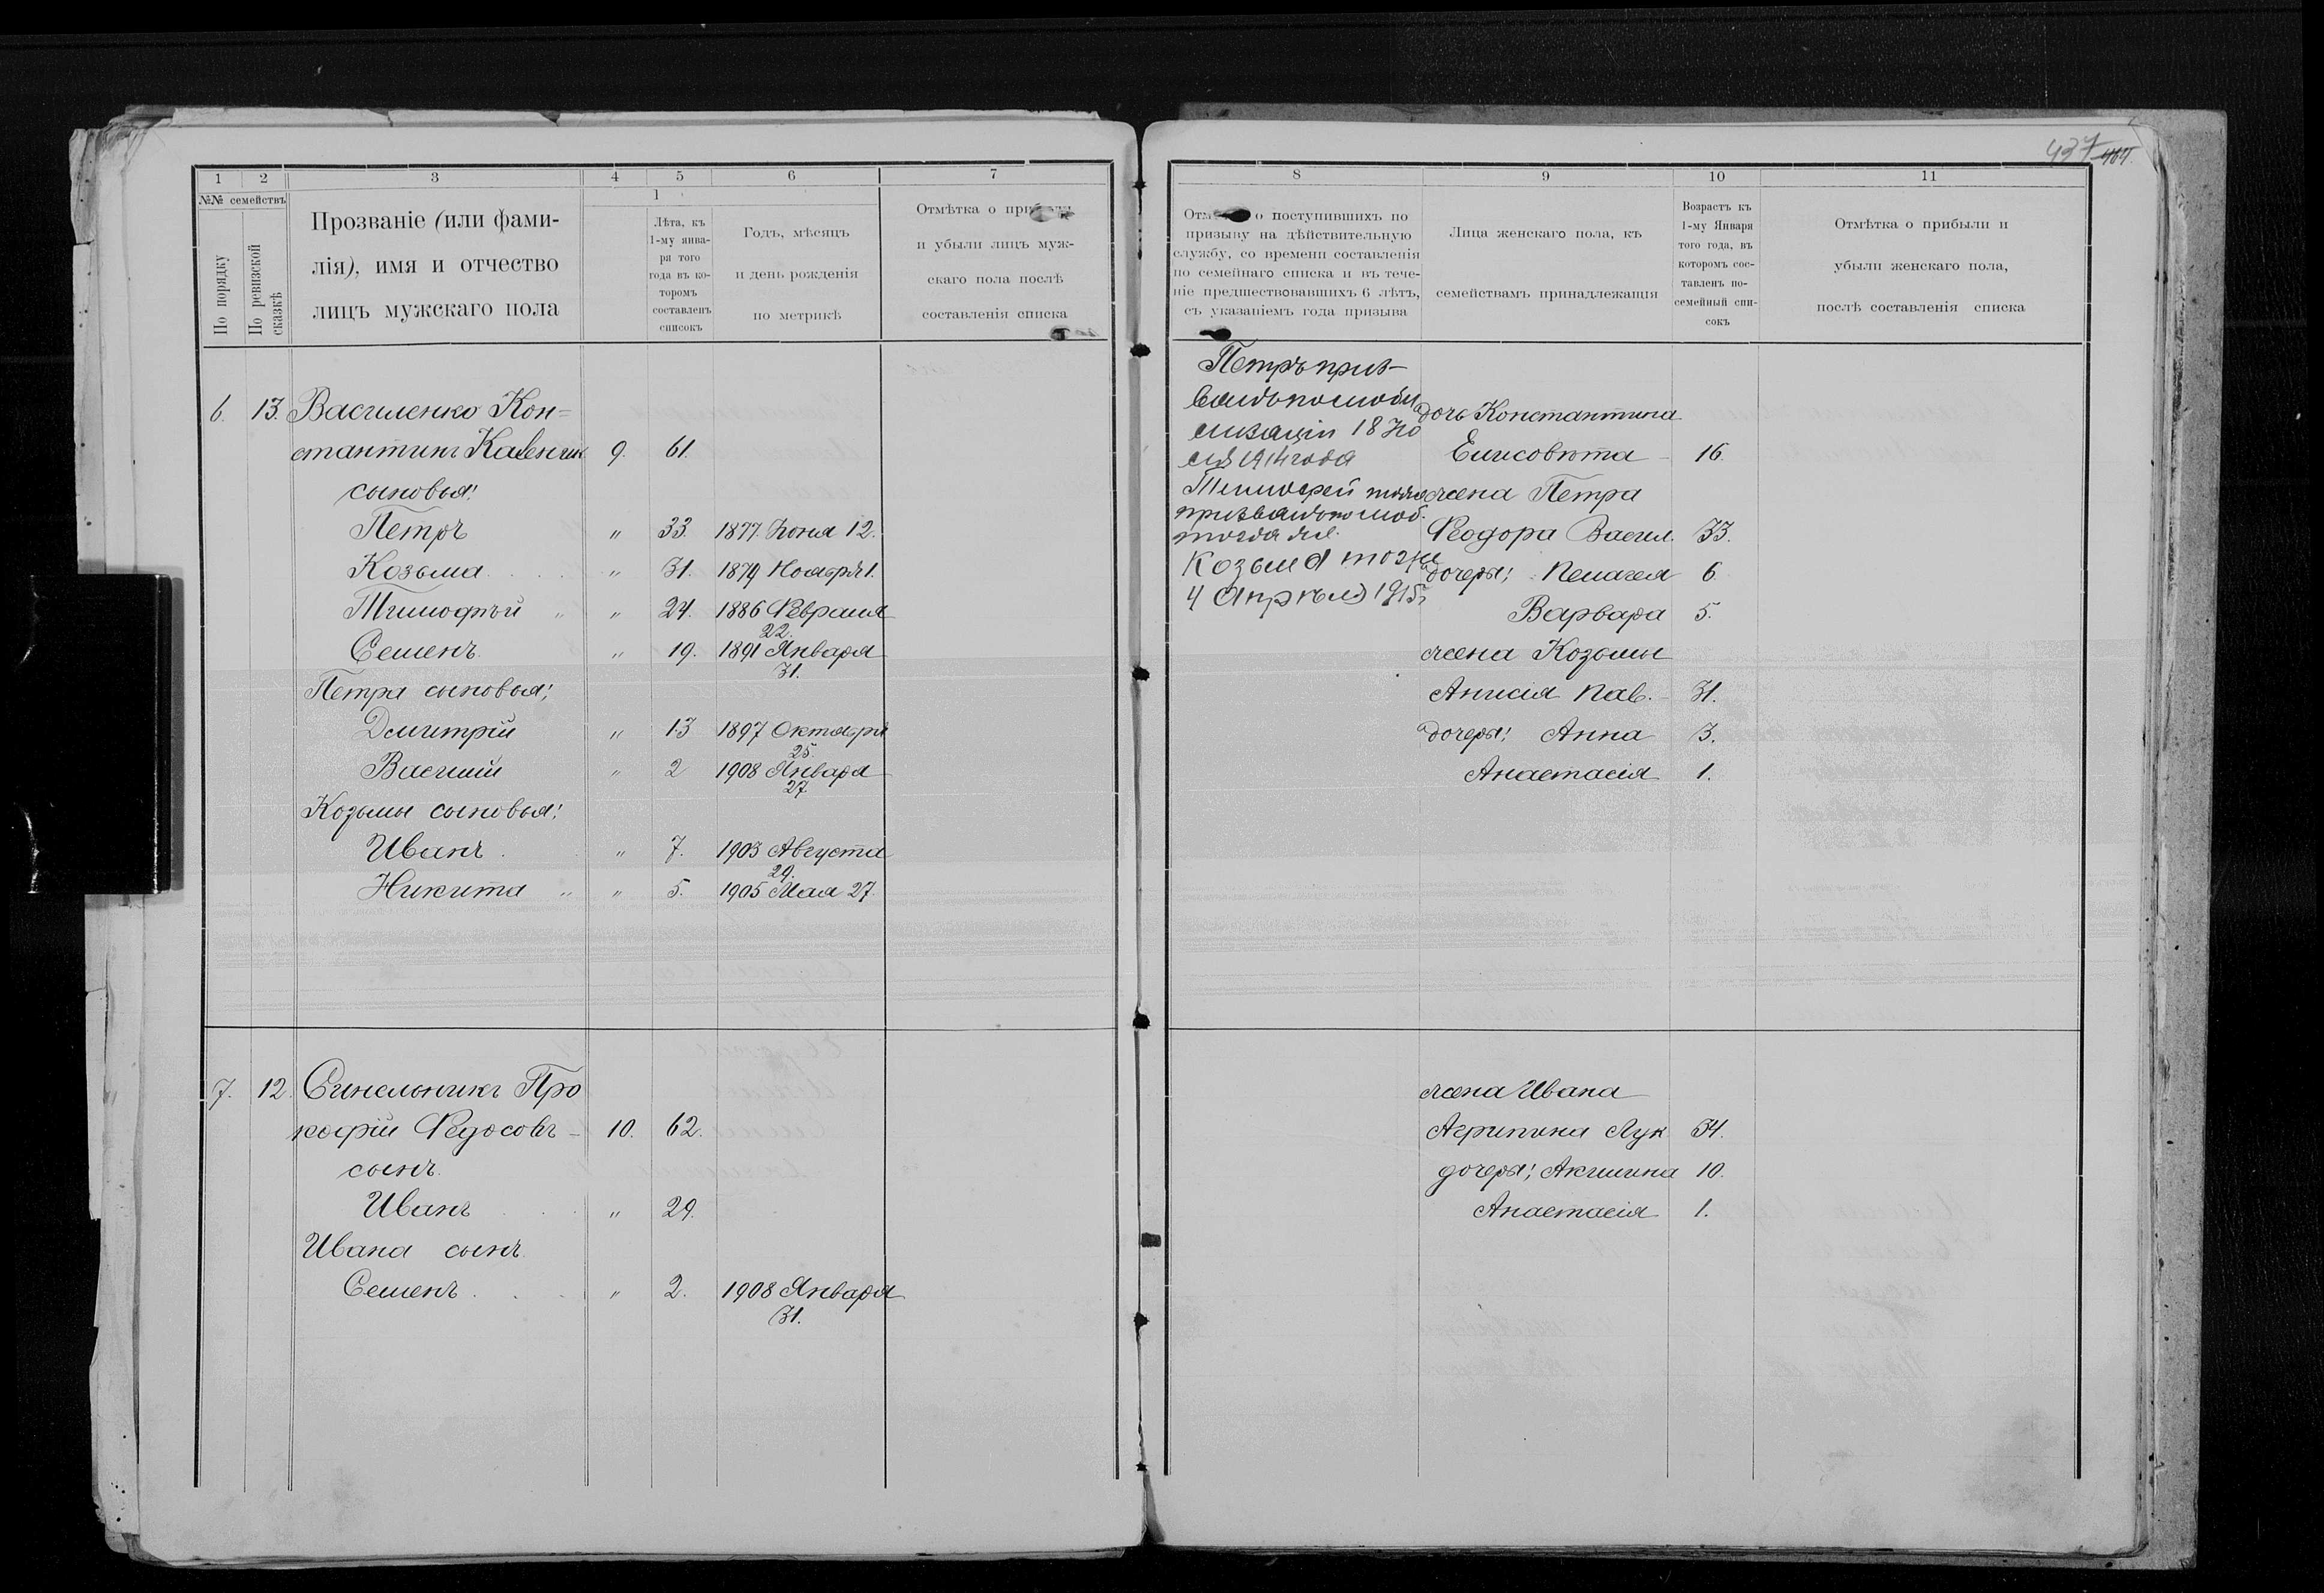 437 464.
1 2 3 4 5 6 7
№№ семействъ
По порядку
По ревизской сказкѣ
Прозваніе (или фами-
лія), имя и отчество
лицъ мужскаго пола
1
Лѣта, къ
1-му янва-
ря того
года въ ко-
торомъ
составленъ
списокъ
Годъ, мѣсяцъ
и день рожденія
по метрикѣ
Отмѣтка о
и убыли лицъ муж-
скаго пола послѣ
составленія списка
6. 13. Василенко Кон=
стантинъ 9. 61.
сыновья:
Петръ " 33. 1877. Іюня 12.
Козьма " 31. 1879 Ноября 1.
Тимофѣй " " 24. 1886 Февраля
22.
Семенъ " 19. 1891 Января
31.
Петра сыновья:
Дмитрій " 13 1897 Октября
25
Василій " 2 1908 Января
27
Козьмы сыновья:
Иванъ " 7. 1903 Августа
29.
Никита " " 5. 1905 Мая 27.
7. 12. Синельникъ Про
кофій Федосовъ - 10. 62.
сынъ.
Иванъ " 29.
Ивана сынъ.
Семенъ " 2. 1908 Января
31.
8 9 10 11
о поступившихъ по
призыву на дѣйствительную
службу, со времени составленія
по семейнаго списка и въ тече-
ніе предшествовавшихъ 6 лѣтъ,
съ указаніемъ года призыва
Лица женскаго пола, къ
семействамъ принадлежащія
Возрастъ къ
1-му Января
того года, въ
которомъ сос-
тавленъ по-
семейный спи-
сокъ
Отмѣтка о прибыли и
убыли женскаго пола,
послѣ составленія списка
Петръ приз-
ванъ по моби
лизаціи 18 Ію
ля 1914 года
Тимофей тоже
призванъ по моб.
тогда же.
Козьма тоже
4 Апрѣля 1915 г
дочь Константина
Елисовѣта - 16.
жена Петра
Феодора Васил. 33.
дочеры: Пелагея 6
Варвара 5.
жена Козьмы
Анисія Пав. - 31.
дочеры: Анна 3.
Анастасія 1.
жена Ивана
Агрипина Лук 34.
дочеры: Акилина 10.
Анастасія 1.